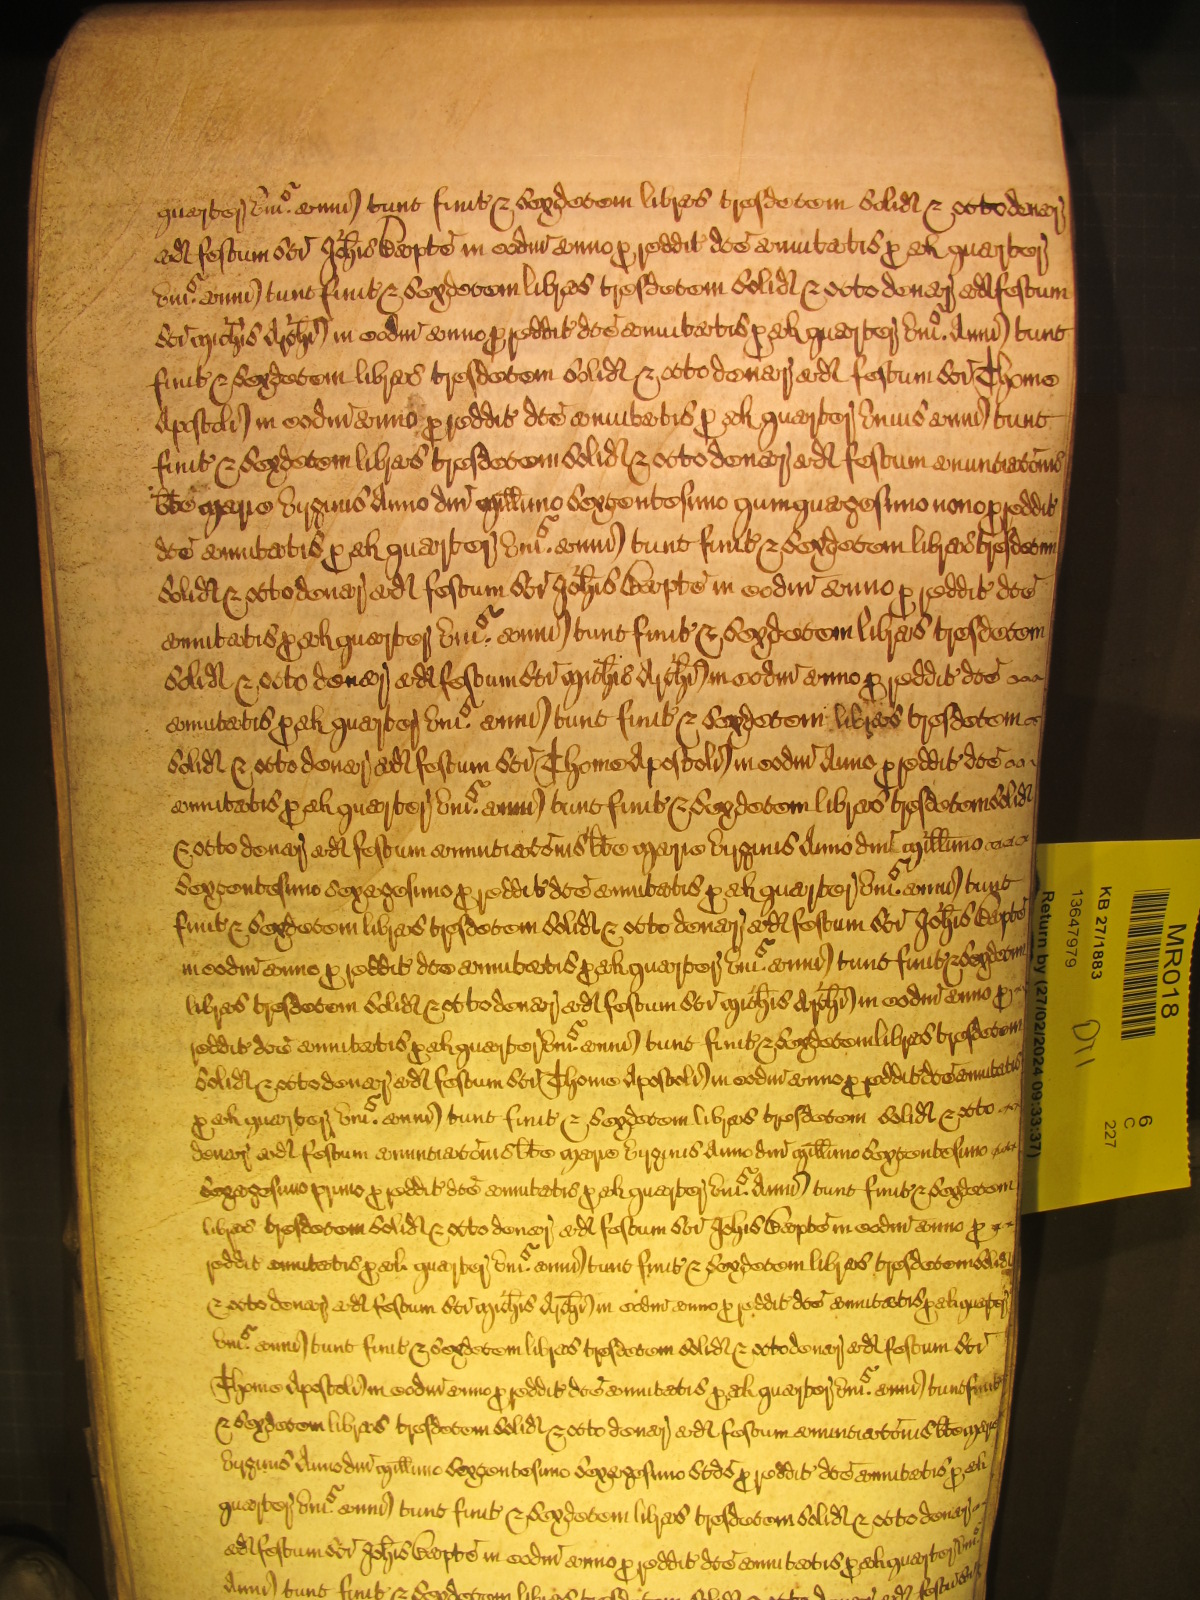 quarter̃ uniꝰ anni) tunc finit̃ & sexdecem libras tresdecem solid̃ & octo denar̃
ad festum sc̃i Joh̃is Bapt̃e in eod̃m anno p̱ reddit̃ dc̃e annuitatis p̱ al̃ quarter̃
uniꝰ anni) tunc finit̃ & sexdecem libras tresdecem solid̃ & octo denar̃ ad festum
sc̃i Mich̃is Arch̃i) in eod̃m anno p̱ reddit̃ dc̃e annuitatis p̱ al̃ quarter̃ uniꝰ Anni) tunc
finit̃ & sexdecem libras tresdecem solid̃ & octo denar̃ ad festum sc̃i Thome
Apostoli) in eod̃m anno p̱ reddit̃ dc̃e annuitatis p̱ al̃ quarter̃ unius anni) tunc
finit̃ & sexdecem libras tresdecem solid̃ & octo denar̃ ad festum annuntiac̃onis
b̃te Marie virginis Anno dñi Mill̃imo sexcentesimo quinquagesimo nono p̱ reddit̃
dc̃e annuitatis p̱ al̃ quarter̃ uniꝰ anni) tunc finit̃ & sexdecem libras tresdecem
solid̃ & octo denar̃ ad festum sc̃i Joh̃is Bapt̃e in eod̃m anno p̱ reddit̃ dc̃e
annuitatis p̱ al̃ quarter̃ uniꝰ anni) tunc finit̃ & sexdecem libras tresdecem
solid̃ & octo denar̃ ad festum sc̃i Mich̃is Arch̃i) in eod̃m anno p̱ reddit̃ dc̃e
annuitatis p̱ al̃ quarter̃ uniꝰ anni) tunc finit̃ & sexdecem libras tresdecem
solid̃ & octo denar̃ ad festum sc̃i Thome Apostoli) in eod̃m Anno p̱ reddit̃ dc̃e
annuitatis p̱ al̃ quarter̃ uniꝰ anni) tunc finit̃ & sexdecem libras tresdecem solid̃
& octo denar̃ ad festum annuntiac̃onis b̃te Marie virginis Anno dñi Mill̃imo
sexcentesimo sexagesimo p̱ reddit̃ dc̃e annuitatis p̱ al̃ quarter̃ uniꝰ anni) tunc
finit̃ & sexdecem libras tresdecem solid̃ & octo denar̃ ad festum sc̃i Joh̃is Bapt̃e
in eod̃m anno p̱ reddit̃ dc̃e annuitatis p̱ al̃ quarter̃ uniꝰ anni) tunc finit̃ & sexdecem
libras tresdecem solid̃ & octo denar̃ ad festum sc̃i Mich̃is Arch̃i) in eod̃m anno p̱
reddit̃ dc̃e annuitatis p̱ al̃ quarter̃ uniꝰ anni) tunc finit̃ & sexdecem libras tresdecem
solid̃ & octo denar̃ ad festum sc̃i Thome Apostoli) in eod̃m anno p̱ reddit̃ dc̃e annuitatis
p̱ al̃ quarter̃ uniꝰ anni) tunc finit̃ & sexdecem libras tresdecem solid̃ & octo
denar̃ ad festum annuntiac̃onis b̃te Marie virginis Anno dñi Mill̃imo sexcentesimo
sexagesimo primo p̱ reddit̃ dc̃e annuitatis p̱ al̃ quarter̃ uniꝰ Anni) tunc finit̃ & sexdecem
libras tresdecem solid̃ & octo denar̃ ad festum sc̃i Joh̃is Bapt̃e in eod̃m anno p̱
reddit̃ annuitatis p̱ al̃ quarter̃ uniꝰ anni) tunc finit̃ & sexdecem libras tresdecem solid̃
& octo denar̃ ad festum sc̃i Mich̃is Arch̃i) in eod̃m anno p̱ reddit̃ dc̃e annuitatis p̱ al̃ quarter̃
uniꝰ anni) tunc finit̃ & sexdecem libras tresdecem solid̃ & octo denar̃ ad festum sc̃i
Thome Apostoli) in eod̃m anno p̱ reddit̃ dc̃e annuitatis p̱ al̃ quarter̃ uniꝰ anni) tunc finit̃
& sexdecem libras tresdecem solid̃ & octo denar̃ ad festum annuntiac̃onis b̃te Marie
virginis Anno dñi Mill̃imo sexcentesimo sexagesimo sc̃do p̱ reddit̃ dc̃e annuitatis p̱ al̃
quarter̃ uniꝰ anni) tunc finit̃ & sexdecem libras tresdecem solid̃ & octo denar̃
ad festum sc̃i Joh̃is Bapt̃e in eod̃m anno p̱ reddit̃ dc̃e annuitatis p̱ al̃ quarter̃ uniꝰ
Anni) tunc finit̃ & sexdecem libras tresdecem solid̃ & octo denar̃ ad festum
MR018
KB 27/1883
13647979
Return by (27/02/2024 09:33:37)
D11
6
C
227